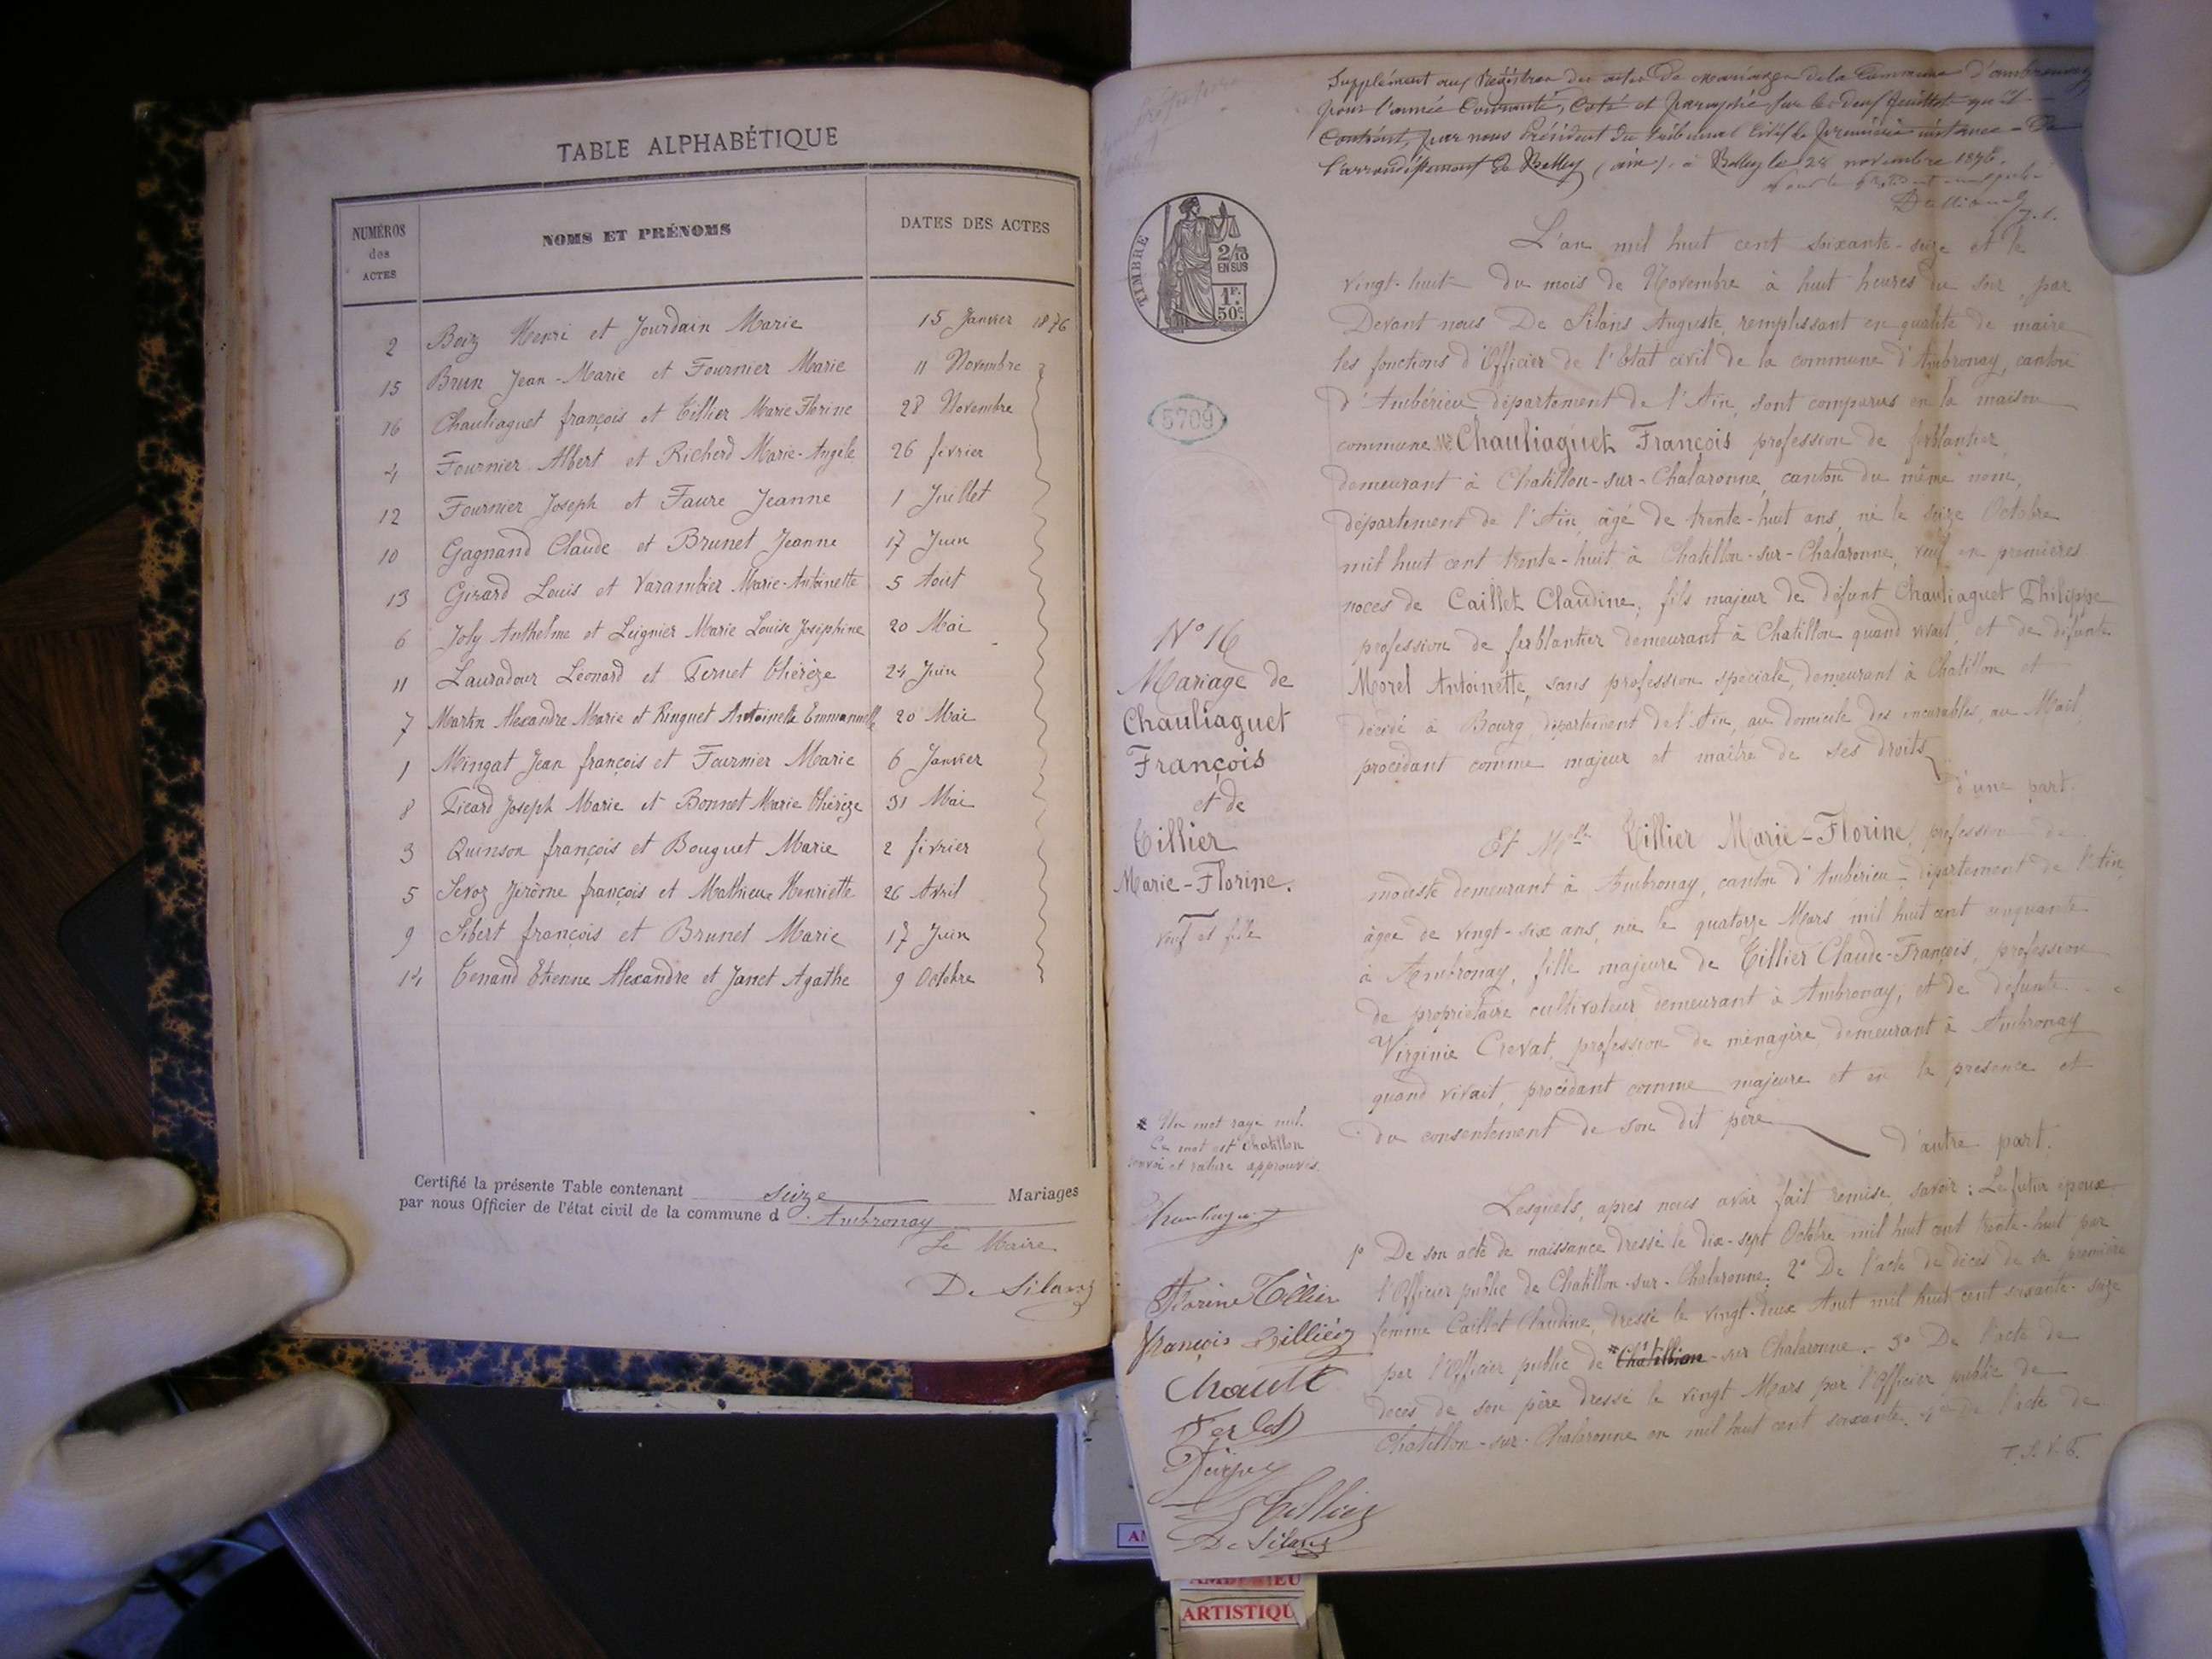 TABLE ALPHABÉTIQUE
NUMÉROS des ACTES
NOMS ET PRÉNOMS
DATES DES ACTES
2 Boiz Henri et Jourdain Marie 15 Janvier 1876
15 Brun Jean-Marie et Fournier Marie 11 Novembre
16 Chauliaguet françois et Tillier Marie Florine 28 Novembre
4 Fournier Albert et Richerd Marie-Angèle 26 fevrier
12 Fournier Joseph et Faure Jeanne 1 Juillet
10 Gagnand Claude et Brunet Jeanne 17 Juin
13 Girard Louis et Varambier Marie-Antoinette 5 Aout
6 Joly Anthelme et Leignier Marie Louise Joséphine 20 Mai
11 Lauradour Léonard et Pernet thérèze 24 Juin
7 Martin Alexandre Marie et Ringuet Antoinette Emmanuelle 20 Mai
1 Mingat Jean françois et Fournier Marie 6 Janvier
8 Picard Joseph Marie et Bonnet Marie thérèze 31 Mai
3 Quinson françois et Bouguet Marie 2 fivrier
5 Sevoz Jérôme françois et Mathieux Henriette 26 Avril
9 Sibert françois et Brunet Marie 17 Juin
14 Tenand Etienne Alexandre et Janet Agathe 9 Octobre
Certifié la présente Table contenant seize Mariages
par nous Officier de l'état civil de la commune d Ambronay
Le Maire
De Silans
Supplément aux Registres des actes de mariages de la Commune d'ambronay
pour l'année Courante, Coté et paraphé sur les deux feuillets qu'il
Contient, par nous Président du tribunal Civil de première instance de
l'arrondissement de Belley (ain). à Belley le 28 novembre 1876.
TIMBRE
2/10
EN SUS
1F.
50c
5709
L'an mil huit cent soixante-seize et le
vingt-huit du mois de Novembre à huit heures du soir, par
Devant nous De Silans Auguste, remplissant en qualité de maire
les fonctions d'Officier de l'Etat civil de la commune d'Ambronay, canton
d'Ambérieu département de l'Ain, sont comparus en la maison
commune Mr Chauliaguet François profession de ferblantier
demeurant à Chatillon-sur-Chalaronne, canton du même nom,
département de l'Ain, âgé de trente-huit ans, né le seize Octobre
mil huit cent trente-huit à Chatillon-sur-Chalaronne, veuf en premières
noces de Caillet Claudine, fils majeur de défunt Chauliaguet Philippe
profession de ferblantier demeurant à Chatillon quand vivait, et de défunte
Morel Antoinette, sans profession spéciale, demeurant à Chatillon et
décédé à Bourg, département de l'Ain, au domicile des incurables, au Mail,
procédant comme majeur et maître de ses droits
d'une part.
Et Mlle Tillier Marie-Florine, profession de
modiste demeurant à Ambronay, canton d'Ambérieu, département de l'Ain,
âgée de vingt-six ans, née le quatorze Mars mil huit cent cinquante
à Ambronay, fille majeure de Tillier Claude-François, profession
de propriétaire cultivateur demeurant à Ambronay, et de defunte
Virginie Crevat, profession de ménagère demeurant à Ambronay
quand vivait, procédant comme majeure et en la présence et
du consentement de son dit père
d'autre part.
Lesquels, apres nous avoir fait remise, savoir: Le futur epoux
1º De son acte de naissance dressé le dix-sept Octobre mil huit cent trente-huit par
l'Officier public de Chatillon-sur-Chalaronne. 2º De l'acte de décès de sa première
femme Caillet Claudine, dressé le vingt-deux Aout mil huit cent soixante-seize
par l'Officier public de * Châtillion sur Chalaronne. 3º De l'acte de
décès de son père dressé le vingt Mars par l'Officier public de
Chatillon-sur-Chalaronne en mil huit cent soixante. 4º De l'acte de
T. S. V. P.
Nº 16
Mariage de
Chauliaguet
François
et de
Tillier
Marie-Florine.
veuf et fille
* Un mot rayé nul.
Ce mot est Chatillon
renvoi et rature approuvés.
Florine Tillier
françois Tillier
Tillier
De Silans
AMBERIEU
ARTISTIQU